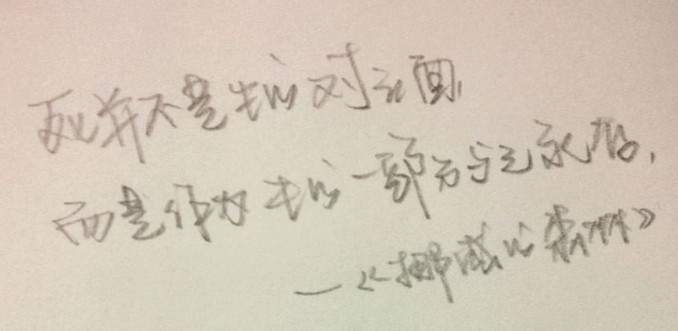 死并不是生的对立面,
而是作为生的一部分与之永存.
—《挪威的森林》